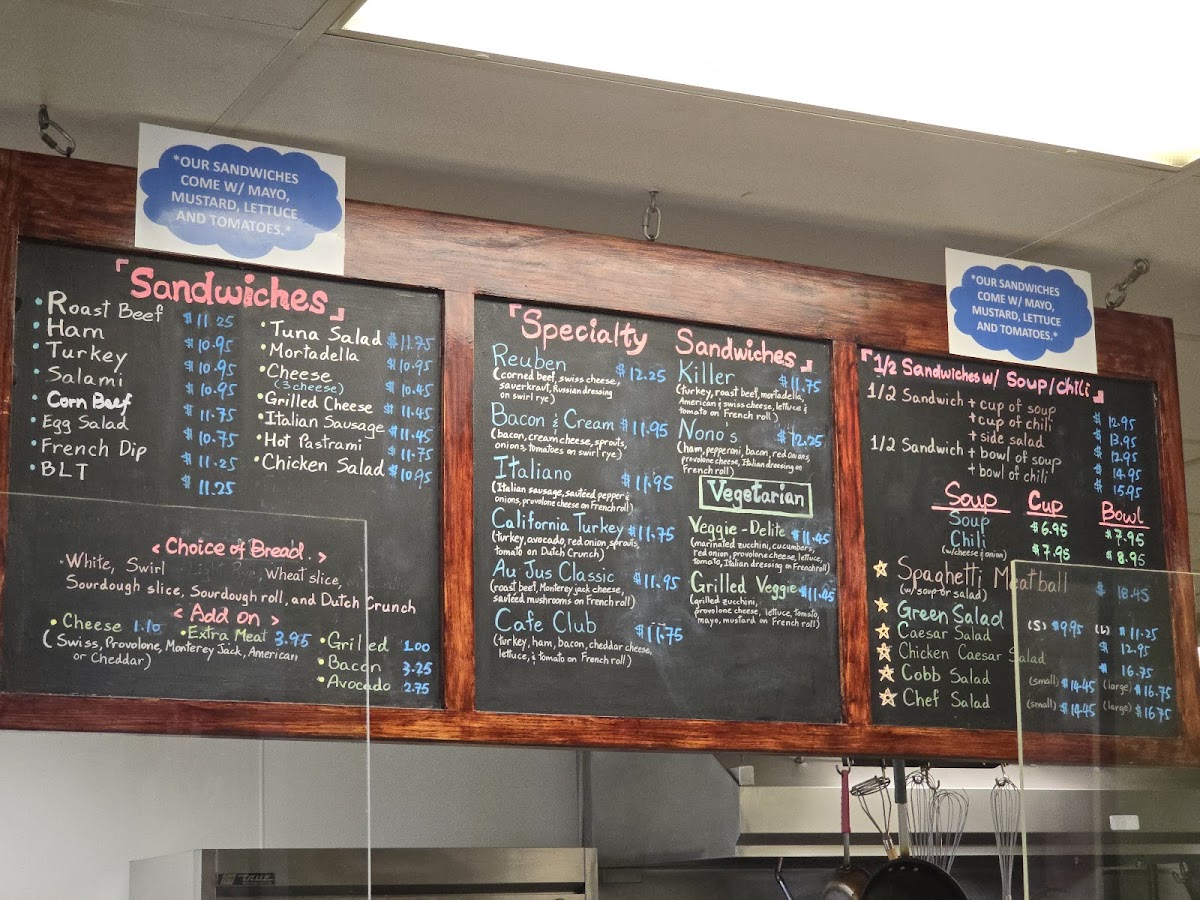 *OUR SANDWICHES
COME W/ MAYO,
MUSTARD, LETTUCE
AND TOMATOES.*
Sandwiches
Roast Beef $11.25
Ham $10.95
Turkey $10.95
Salami $10.95
Corn Beef $11.75
Egg Salad $10.75
French Dip $11.25
BLT $11.25
Tuna Salad $11.75
Mortadella $10.95
Cheese $10.45
(3 cheese)
Grilled Cheese $11.45
Italian Sausage $11.45
Hot Pastrami $11.75
Chicken Salad $10.95
< Choice of Bread. >
White, Swirl Wheat slice,
Sourdough slice, Sourdough roll, and Dutch Crunch
< Add on >
Cheese 1.10
(Swiss, Provolone, Monterey Jack, American
or Cheddar)
Extra Meat 3.95
Grilled 1.00
Bacon 3.25
Avocado 2.75
Specialty Sandwiches
Reuben $12.25
(corned beef, swiss cheese,
sauerkraut, Russian dressing
on swirl rye)
Bacon & Cream $11.95
(bacon, cream cheese, sprouts,
onions, tomatoes on swirl rye)
Italiano $11.95
(Italian sausage, sautéed pepper &
onions, provolone cheese on French roll)
California Turkey $11.75
(turkey, avocado, red onion, sprouts,
tomato on Dutch Crunch)
Au Jus Classic $11.95
(roast beef, Monterey jack cheese,
sautéed mushrooms on French roll)
Cafe Club $11.75
(turkey, ham, bacon, cheddar cheese,
lettuce, & tomato on French roll)
Killer $11.75
(turkey, roast beef, mortadella,
American & swiss cheese, lettuce &
tomato on French roll)
Nono's $12.25
(ham, pepperoni, bacon, red onions,
provolone cheese, Italian dressing on
French roll)
Vegetarian
Veggie-Delite $11.45
(marinated zucchini, cucumbers,
red onion, provolone cheese, lettuce,
tomato, Italian dressing on French roll)
Grilled Veggie $11.45
(grilled zucchini,
provolone cheese, lettuce, tomato,
mayo, mustard on French roll)
*OUR SANDWICHES
COME W/ MAYO,
MUSTARD, LETTUCE
AND TOMATOES.*
1/2 Sandwiches w/ Soup/Chili
1/2 Sandwich + cup of soup $12.95
+ cup of chili $13.95
+ side salad $12.95
1/2 Sandwich + bowl of soup $14.95
+ bowl of chili $15.95
Soup Cup Bowl
Soup $6.95 $7.95
Chili $7.95 $8.95
(w/cheese & onion)
Spaghetti Meatball $18.45
(w/ soup or salad)
Green Salad (S) $9.95 (L) $11.25
Caesar Salad $12.95
Chicken Caesar Salad $16.75
Cobb Salad (small) $14.45 (large) $16.75
Chef Salad (small) $14.45 (large) $16.75
true